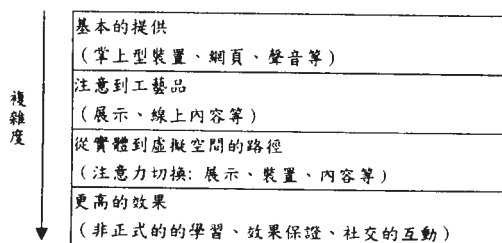 複雜度
基本的提供
（掌上型裝置、網頁、聲音等）
注意到工藝品
（展示、線上內容等）
從實體到虛擬空間的路徑
（注意力切換: 展示、裝置、內容等）
更高的效果
（非正式的的學習、效果保證、社交的互動）